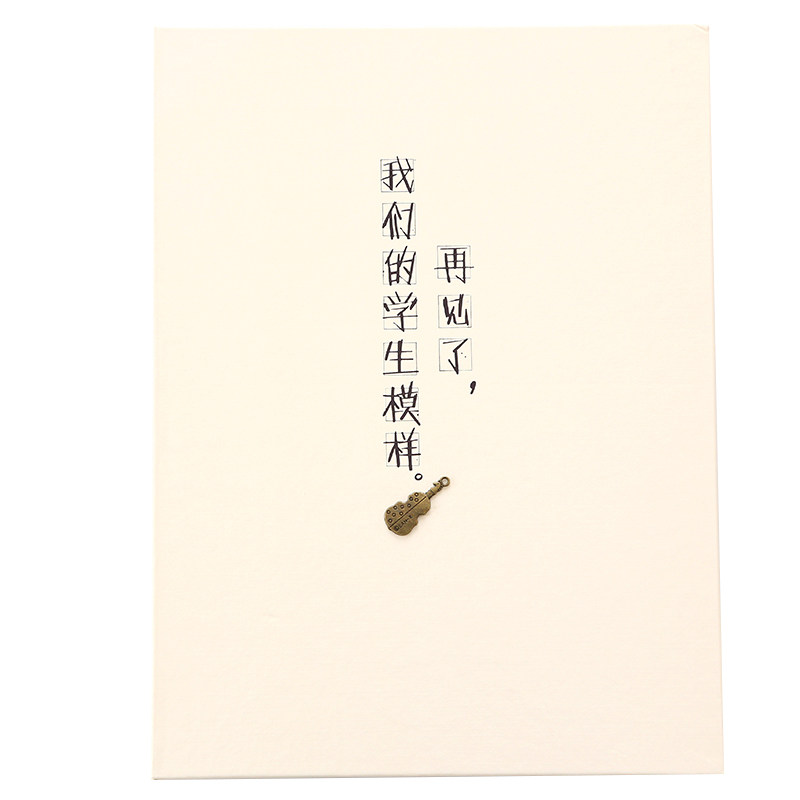 再见了,
我们的学生模样。